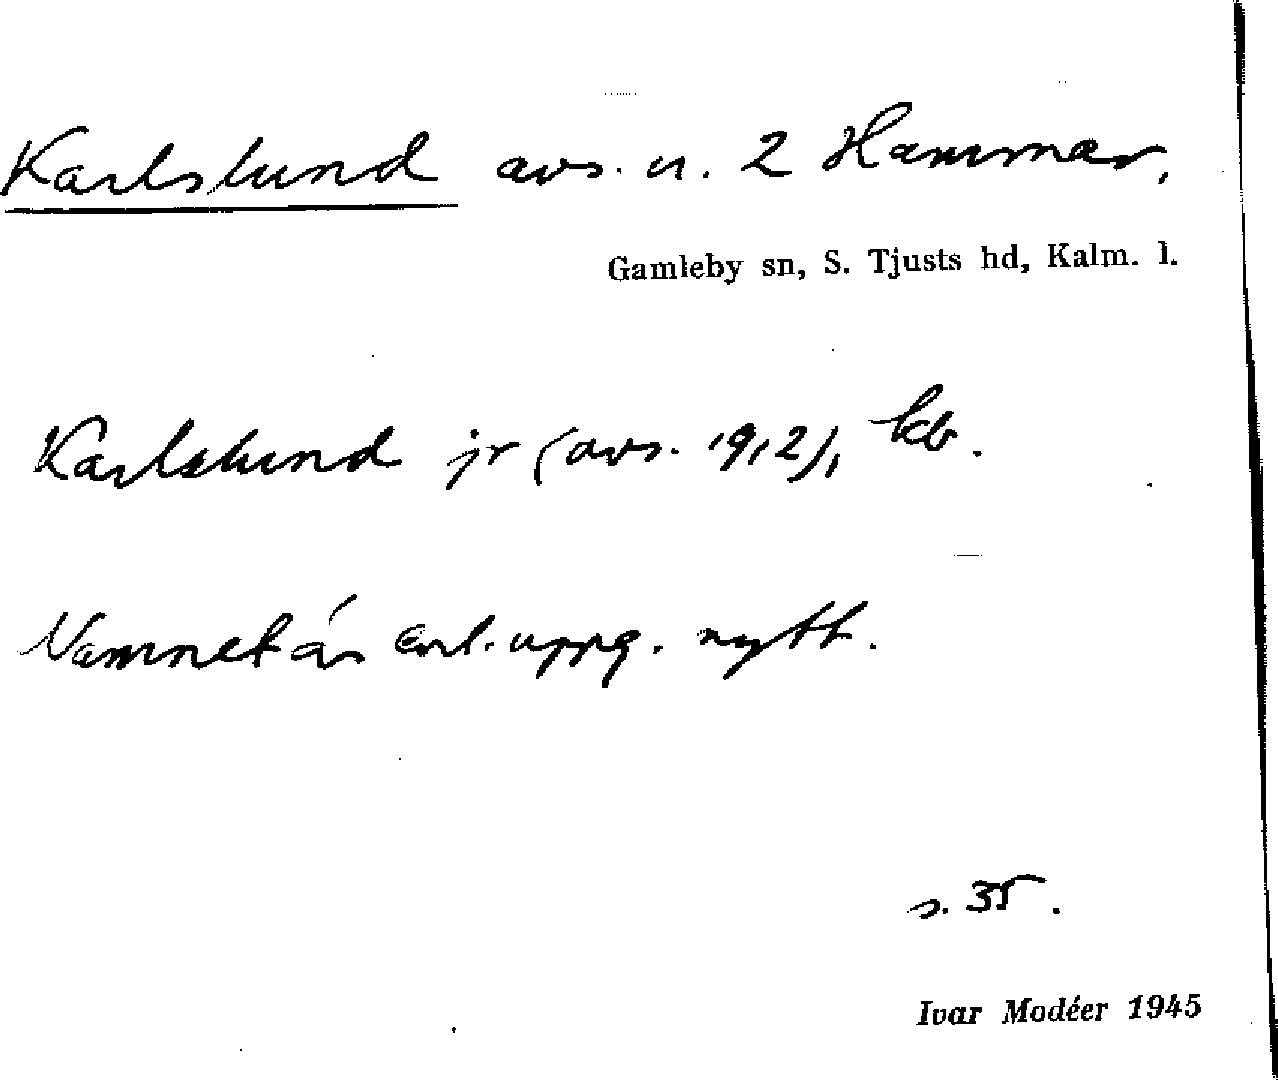 Karlslund avs. u. 2 Hammar,
Gamleby sn, S. Tjusts hd, Kalm. l.
Karlslund jr (avs. 1912), kb.
Namnet är enl. uppg. nytt.
s. 35.
Ivar Modéer 1945